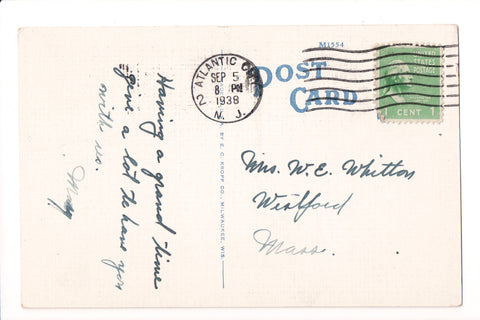 M1554
POST
CARD
ATLANTIC
SEP 5
8 PM
1938
N. J.
2
STATES
POSTAGE
CENT 1
Having a grand time
give a lot to have you
with us.
BY E. C. KROPP CO., MILWAUKEE, WIS.
Mrs. W. E. Whitton
Westford
Mass.